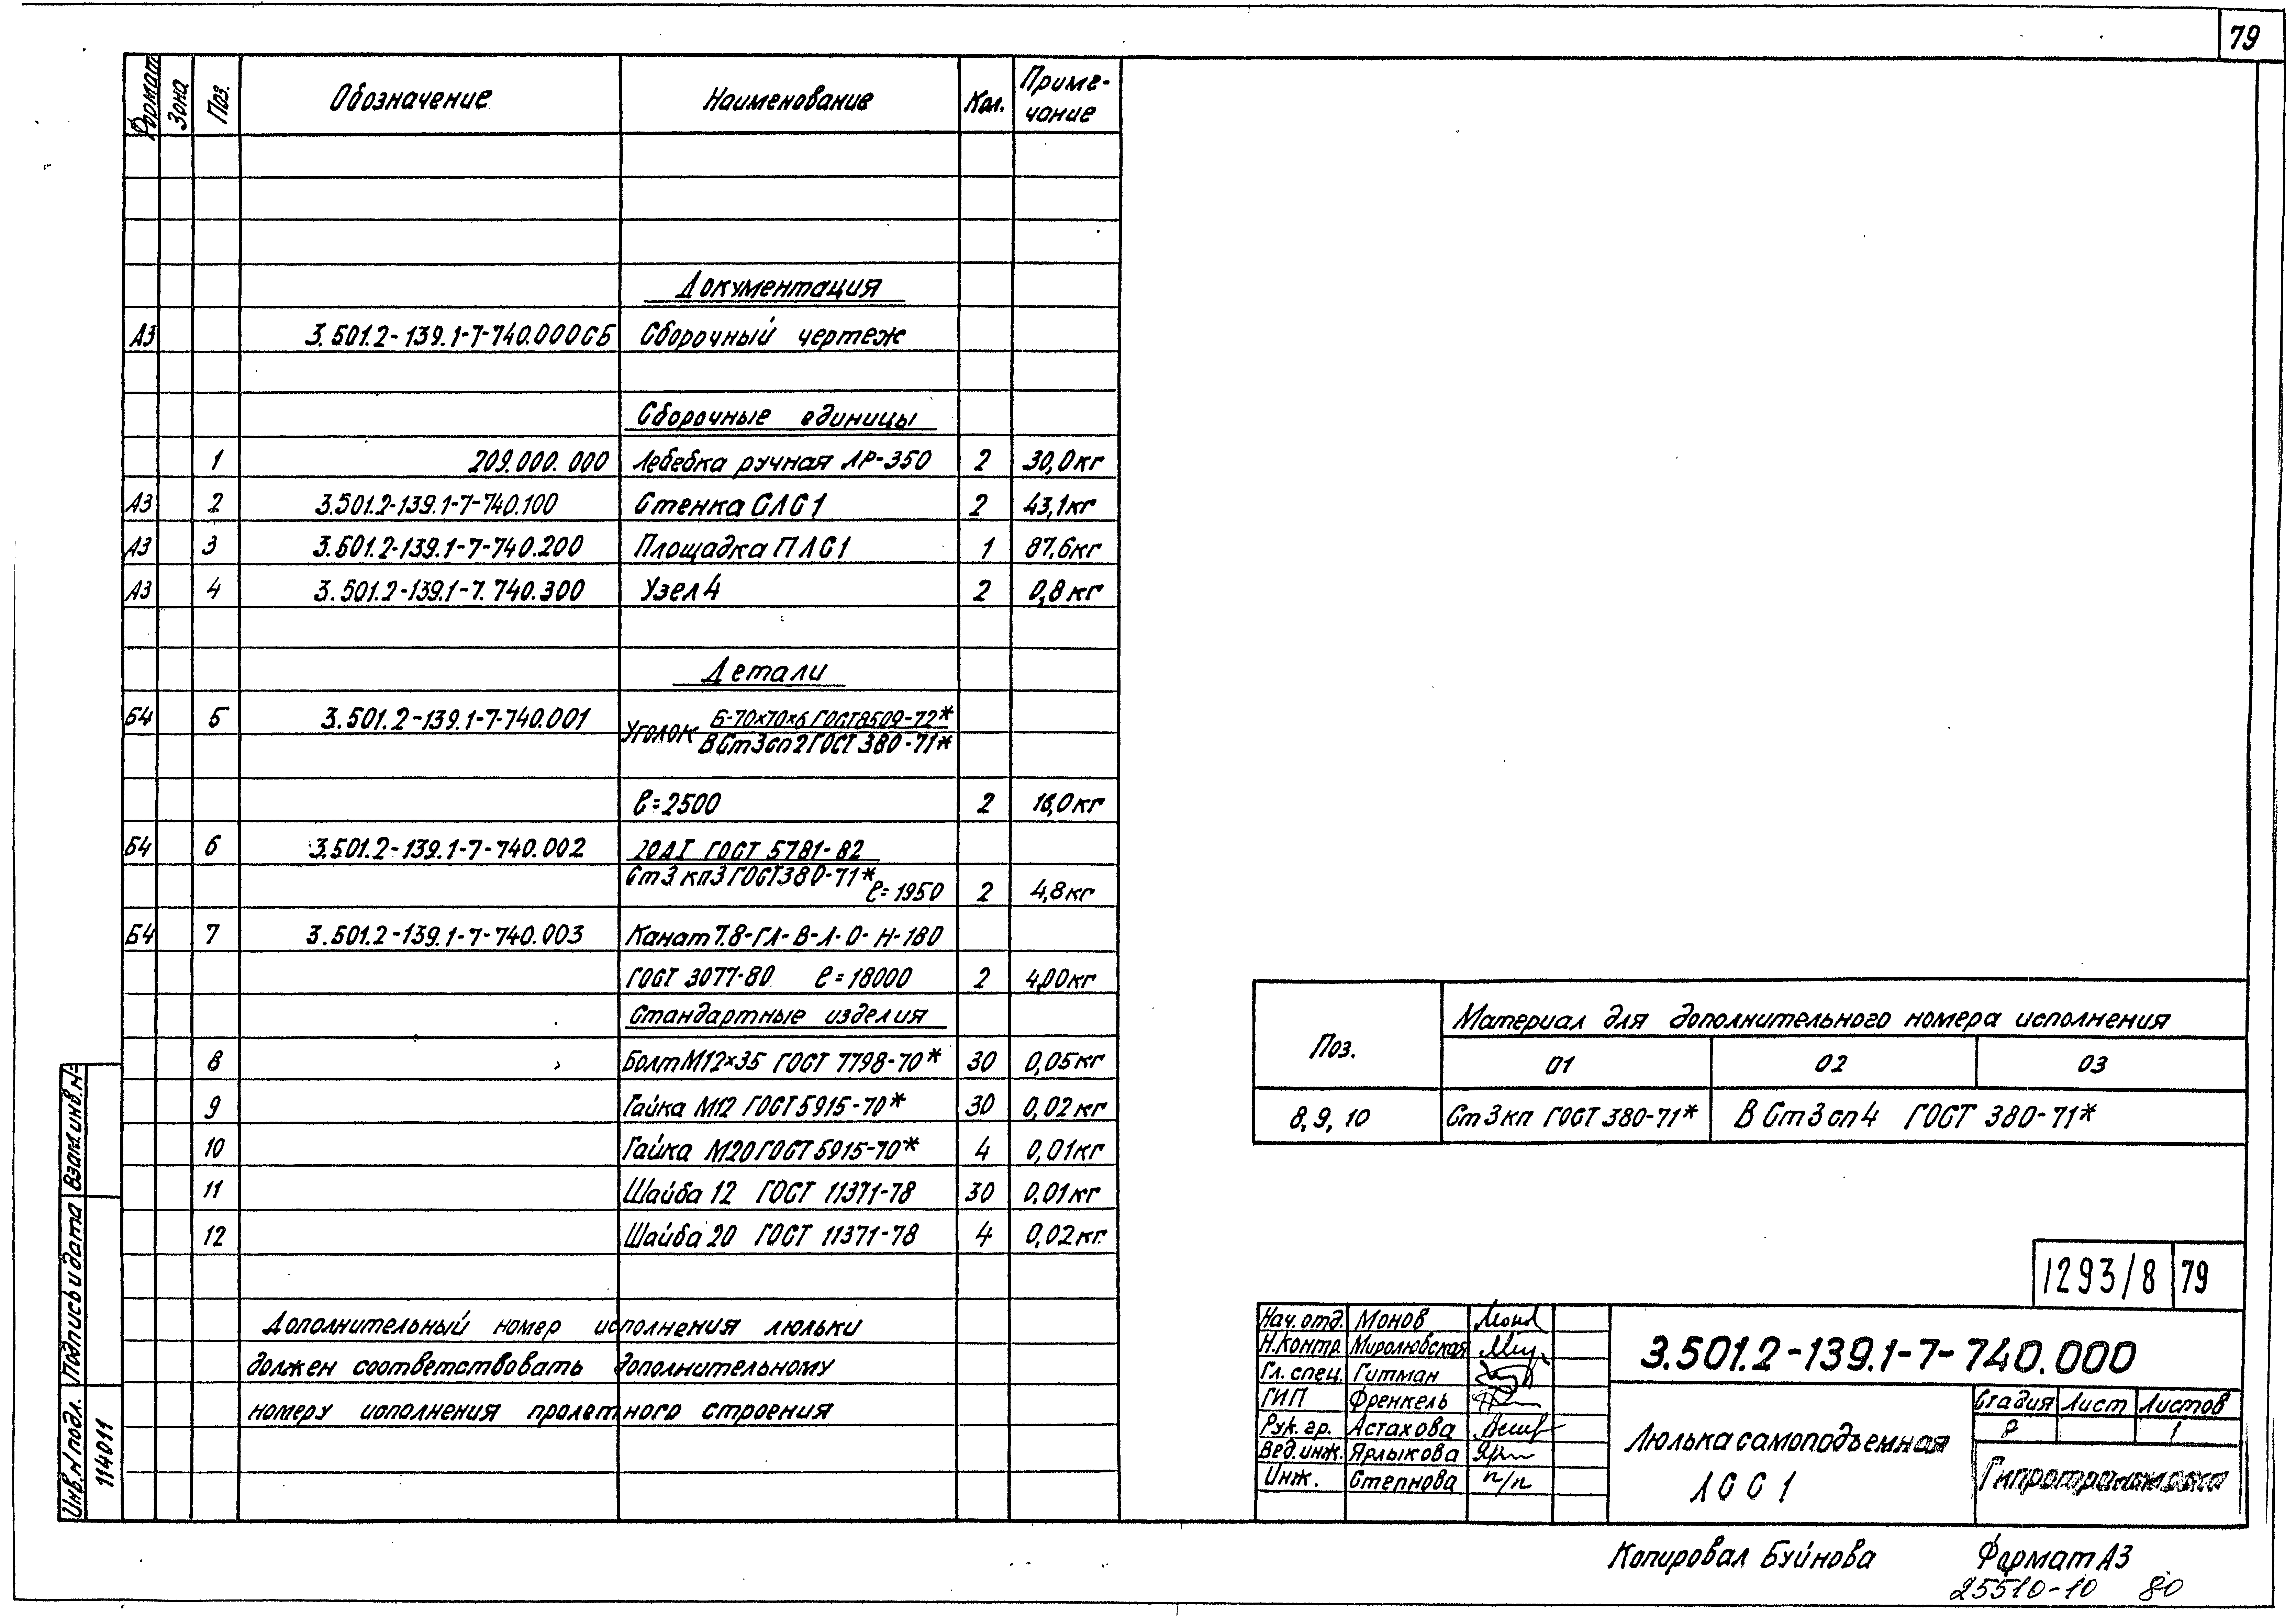 79
Формат Зона Поз. Обозначение Наименование Кол. Приме-
чание
Документация
А3 3.501.2-139.1-7-740.000СБ Сборочный чертеж
Сборочные единицы
1 209.000.000 Лебедка ручная ЛР-350 2 30,0кг
А3 2 3.501.2-139.1-7-740.100 Стенка СЛС1 2 43,1кг
А3 3 3.501.2-139.1-7-740.200 Площадка ПЛС1 1 87,6кг
А3 4 3.501.2-139.1-7.740.300 Узел 4 2 0,8кг
Детали
Б4 5 3.501.2-139.1-7-740.001 Уголок Б-70×70×6 ГОСТ 8509-72*
ВСт3сп2 ГОСТ 380-71*
ℓ=2500 2 16,0кг
Б4 6 3.501.2-139.1-7-740.002 20АI ГОСТ 5781-82
Ст3кп3 ГОСТ 380-71*
ℓ=1950 2 4,8кг
Б4 7 3.501.2-139.1-7-740.003 Канат 7.8-ГЛ-В-Л-О-Н-180
ГОСТ 3077-80 ℓ=18000 2 4,00кг
Стандартные изделия
8 Болт М12×35 ГОСТ 7798-70* 30 0,05кг
9 Гайка М12 ГОСТ 5915-70* 30 0,02кг
10 Гайка М20 ГОСТ 5915-70* 4 0,01кг
11 Шайба 12 ГОСТ 11371-78 30 0,01кг
12 Шайба 20 ГОСТ 11371-78 4 0,02кг.
Дополнительный номер исполнения люльки
должен соответствовать дополнительному
номеру исполнения пролетного строения
Поз. Материал для дополнительного номера исполнения
01 02 03
8, 9, 10 Ст3кп ГОСТ 380-71* ВСт3сп4 ГОСТ 380-71*
1293/8 79
Нач. отд. Монов
Н.контр. Миролюбская
Гл. спец. Гитман
ГИП Френкель
Рук. гр. Астахова
Вед. инж. Ярлыкова
Инж. Степнова п/п
3.501.2-139.1-7-740.000
Люлька самоподъемная
ЛСС1
Стадия Лист Листов
Р 1
Гипротрансмост
Инв.N подл. Подпись и дата Взам.инв.N
114011
Копировал Буйнова Формат А3
25510-10 80